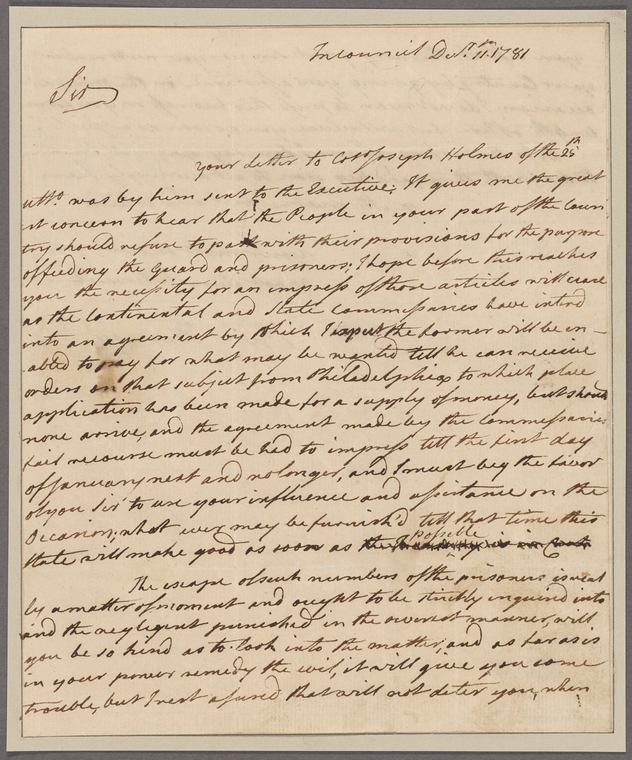 In Council Decr. 11th. 1781
Sir
Your Letter to Colo Joseph Holmes of the 25th
ulto. was by him sent to the Executive. It gives me the great
st concern to hear that the People in your part of the Coun
try should refuse to part with their provisions for the purpose
of feeding the Guard and prisoners; I hope before this reaches
you the necessity for an impress of those articles will cease
as the Continental and State Commissaries have intred
into an agreement by which I expect the former will be in-
abled to pay for what may be wanted till he can receive
orders on that subject from Philadelphia to which place
application has been made for a supply of money, but should
none arrive, and the agreement made by the Commissaries
fail recourse must be had to impress till the first day
of January next and no longer, and I must beg the favor
of you Sir to use your influence and assistance on the
Occasion; what ever may be furnish'd till that time this
possible
State will make good as soon as the is in Cash
The escape of such numbers of the prisoners is real
ly a matter of moment and ought to be strictly inquired into
and the negligent punished in the severest manner, will
you be so kind as to look into the matter, and as far as is
in your power remedy the evil, it will give you some
trouble, but I rest assured that will not deter you, when